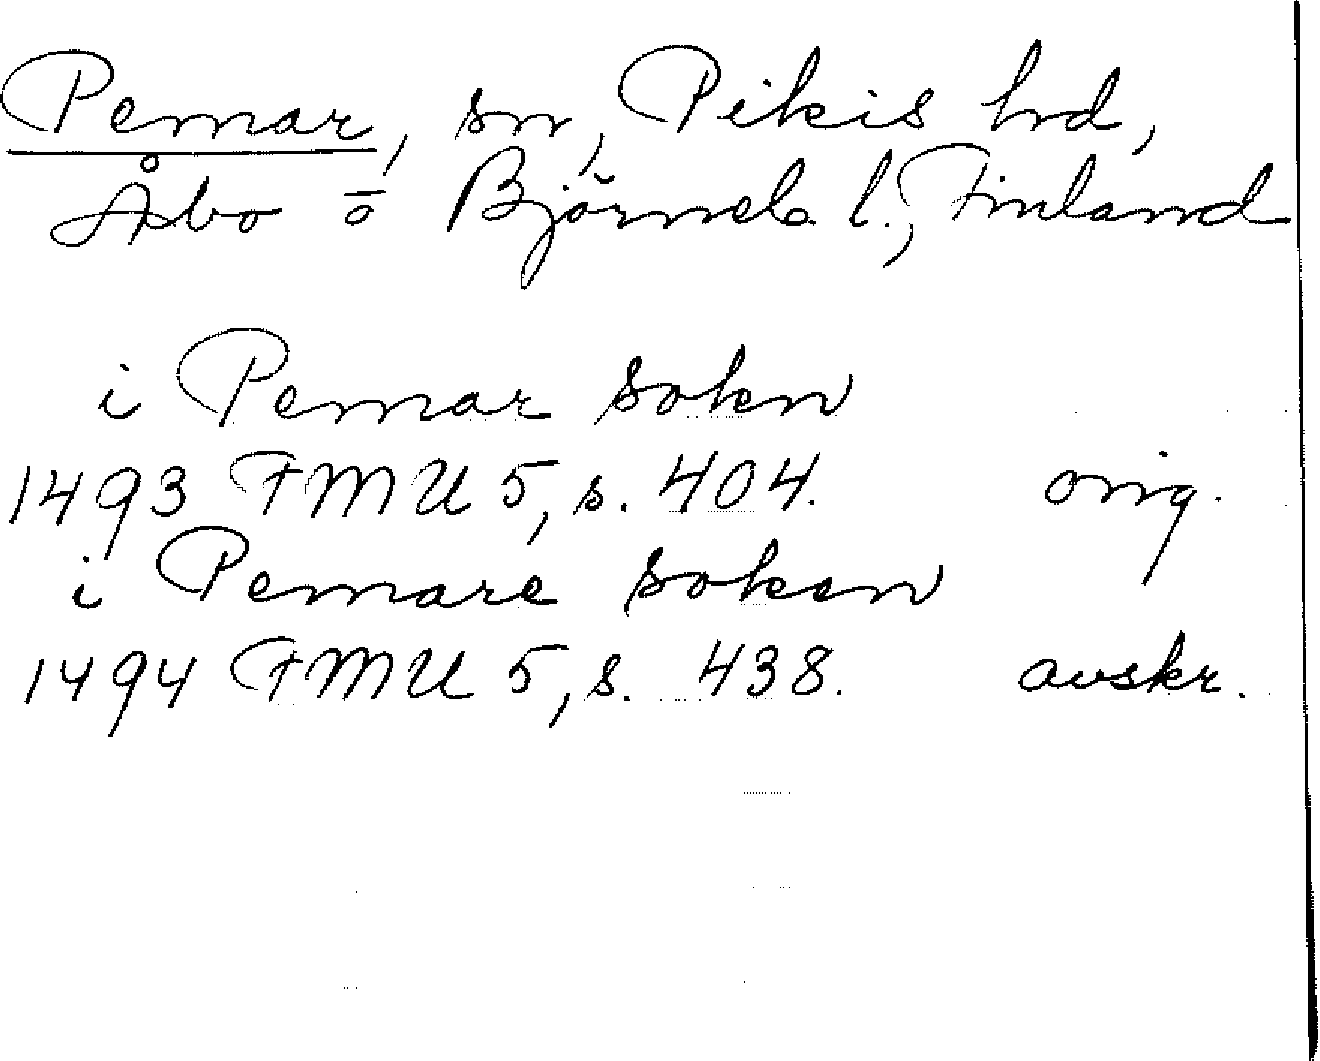 Pemar, sn, Pikis hrd,
Åbo o Björneb l., Finland
i Pemar sokn
1493 FMU 5, s. 404. orig.
i Pemare soken
1494 FMU 5, s. 438. avskr.